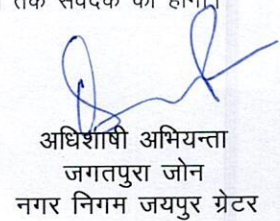 तक संवेदक की होगी।
अधिशाषी अभियन्ता
जगतपुरा जोन
नगर निगम जयपुर ग्रेटर